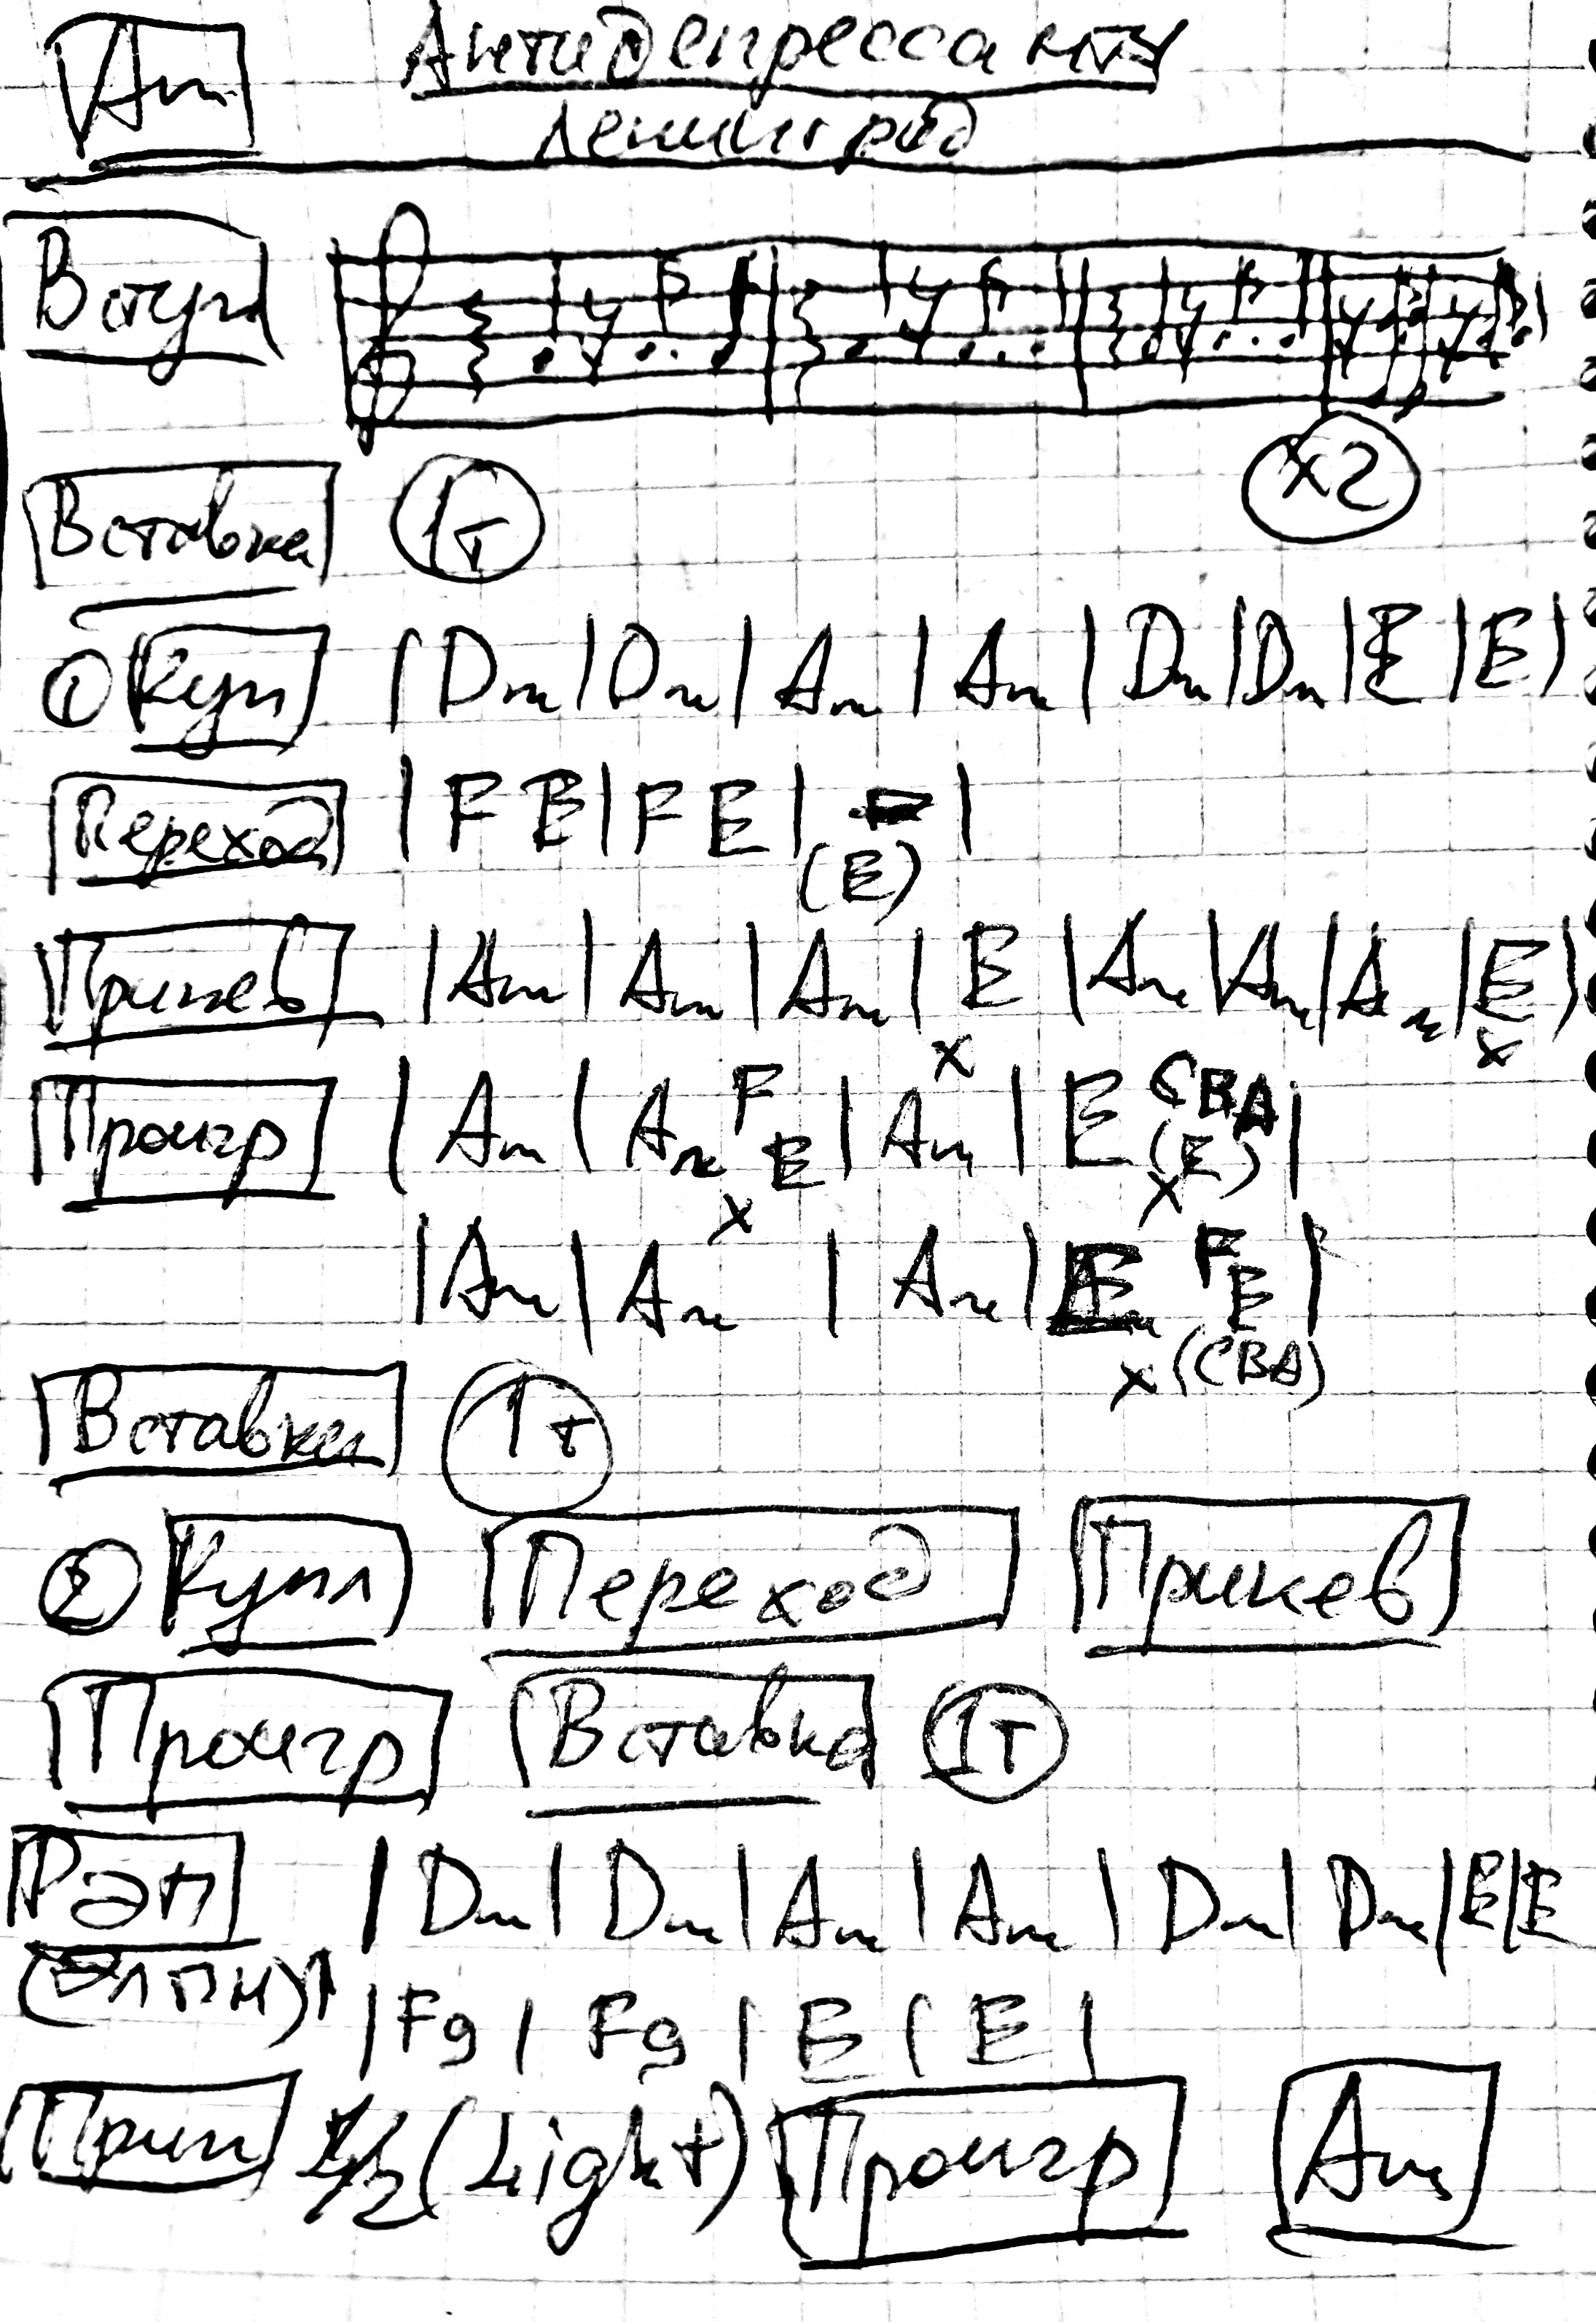 Am Антидепрессанты
Ленинград
Вступ
x2
Вставка 1т
① Куп | Dm | Dm | Am | Am | Dm | Dm | E | E |
Переход | F E | F E | |
(E)
Припев | Am | Am | Am | E | Am | Am | Am | E |
x x
Проигр | Am | Am F E | Am | E CBA (E) |
x x
| Am | Am | Am | E F E |
x (CBA)
Вставка 1т
② Купл Переход Припев
Проигр Вставка 1т
Рэп | Dm | Dm | Am | Am | Dm | Dm | E | E
| Fg | Fg | E | E |
Прип 1/2 (Light) Проигр Am